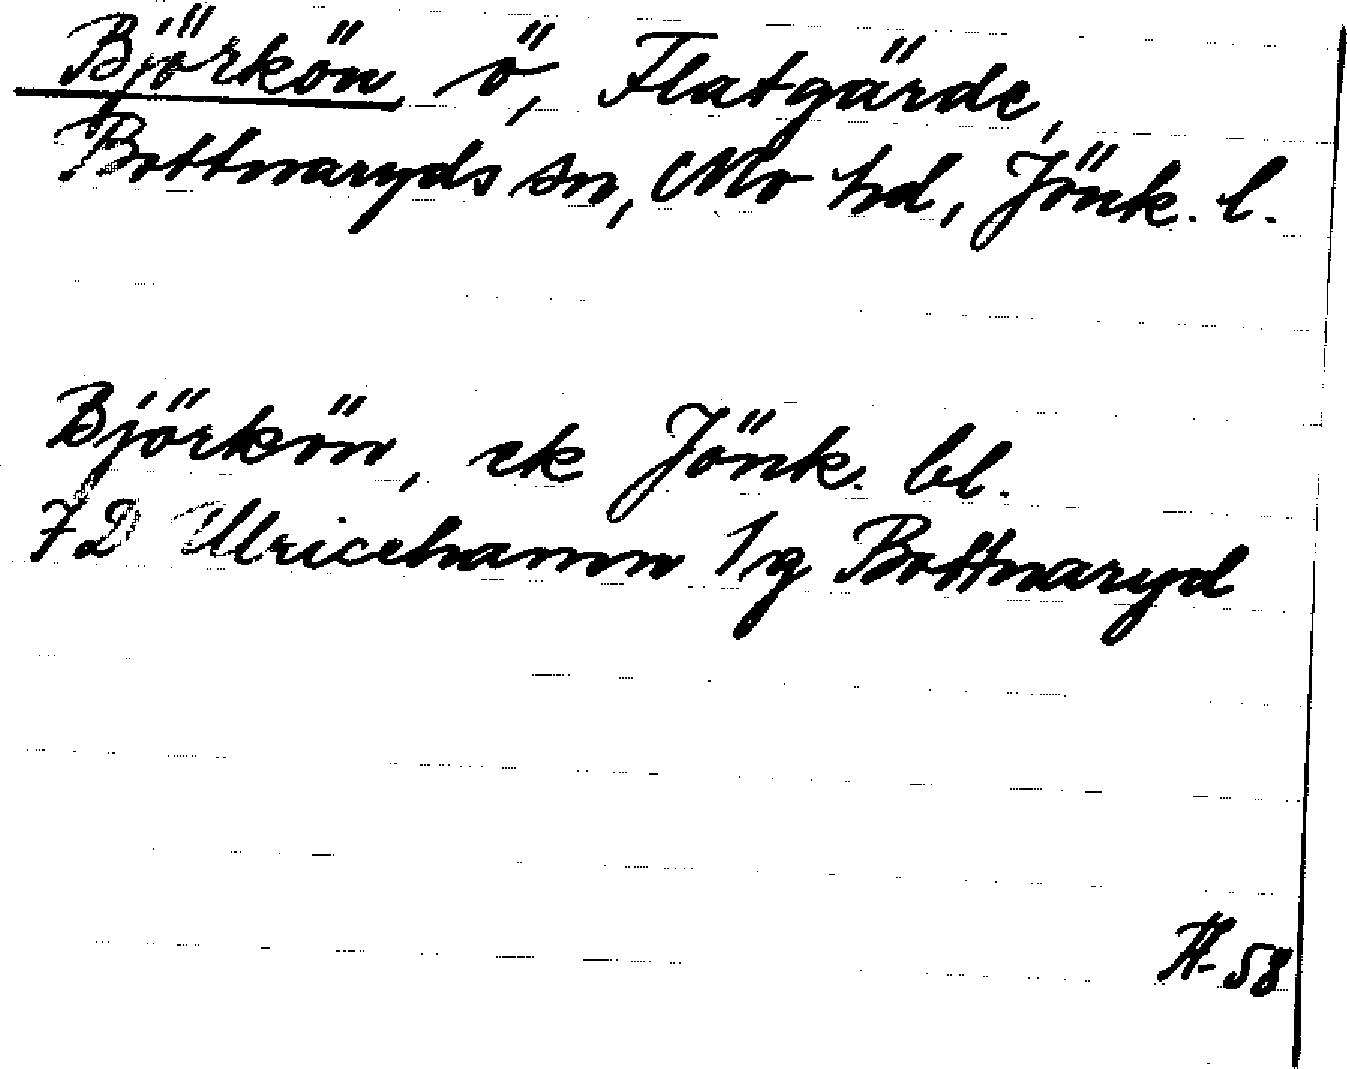 Björkön, ö, Flatgärde,
Bottnaryds sn, Mo hd, Jönk. l.
Björkön, ek Jönk. bl.
7D Ulricehamn 1g Bottnaryd
-58